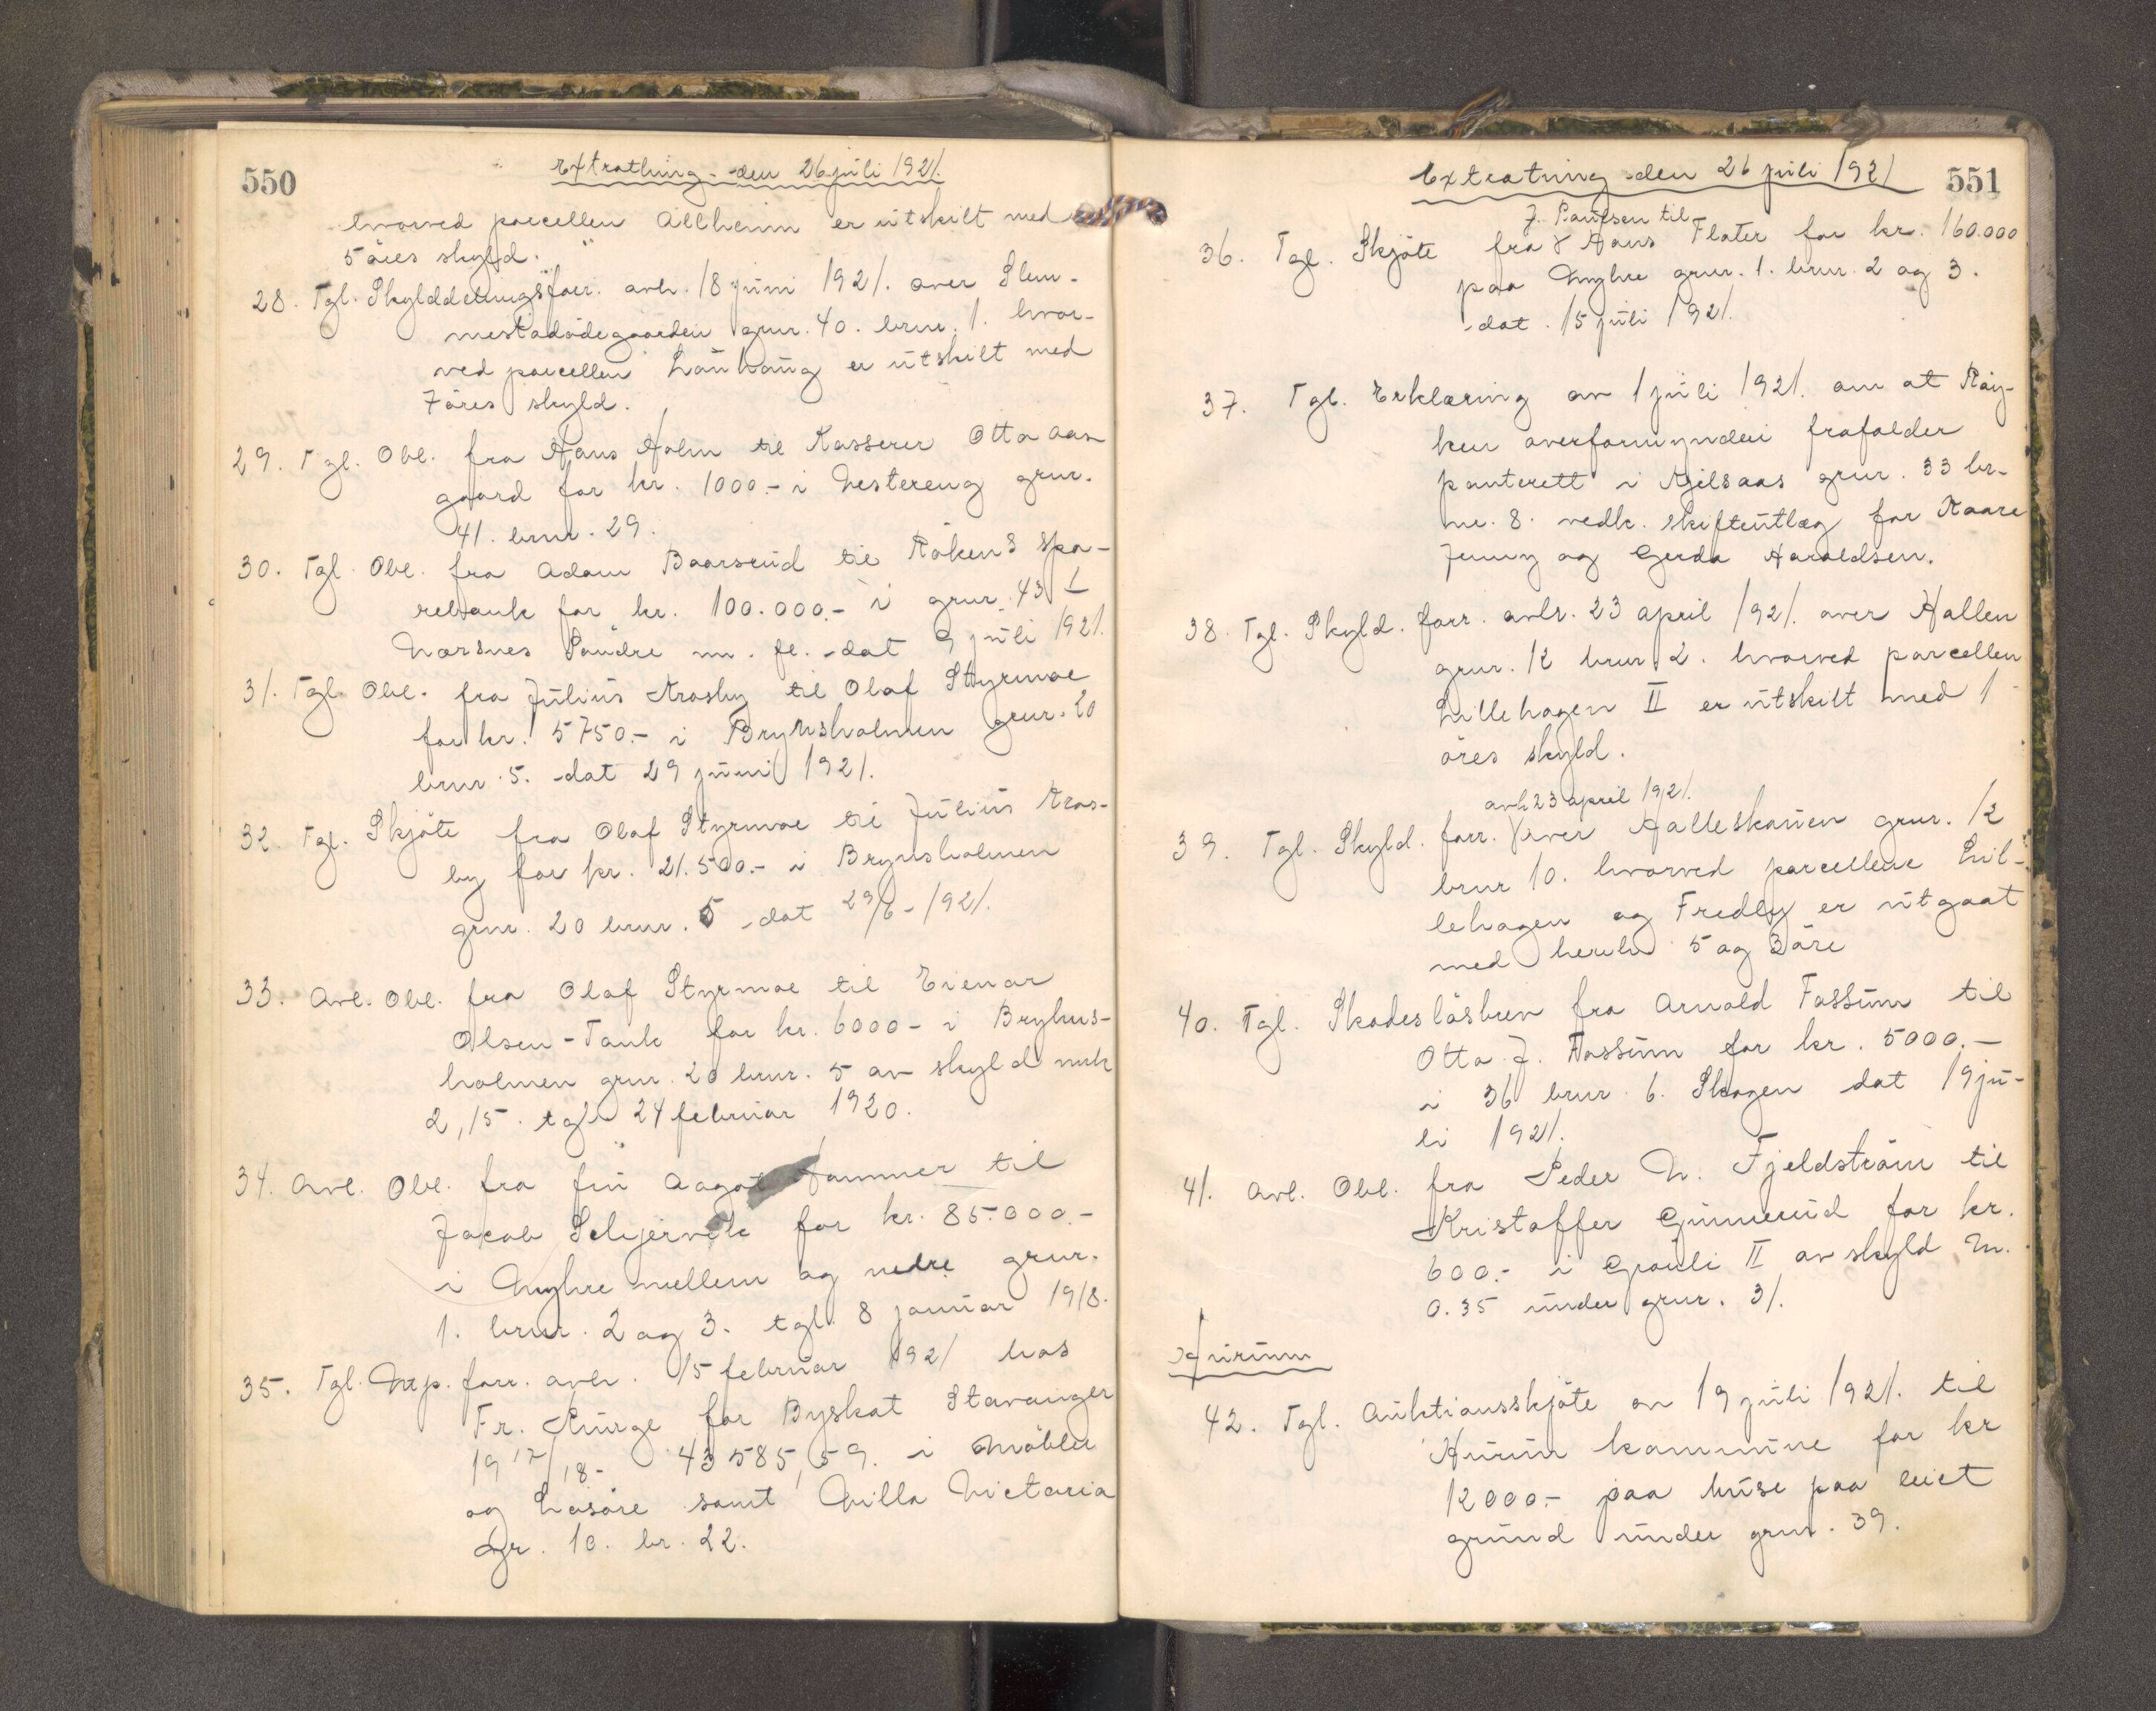 550
Extrathing den 26 juli 1921.
hvorved parcellen Allheim er utskilt med
5 öres skyld.
28. Tgl. Skylddelingsforr. avh. 18 juni 1921. over Slem-
mestadödegaarden grnr. 40. brnr. 1. hvor-
ved parcellen Lönhaug er utskilt med
7 öres skyld.
29. Tgl. Obl. fra Hans Holm til Kasserer Otto Aas-
gaard for kr. 1000.- i Vestereng grnr.
41. brnr. 29.
30. Tgl. Obl. fra Adam Baarsrud til Rökens Spa-
rebank for kr. 100.000.- i grnr. 43 1
Nærsnes Söndre m. fl. dat 9 juli 1921.
31. Tgl. Obl. fra Julius Krosby til Olaf Styrmoe
for kr. 5750.- i Brynsholmen grnr. 20
brnr. 5. dat 29 juni 1921.
32. Tgl. Skjöte fra Olaf Styrmoe til Julius Kros-
by for kr. 21.500.- i Brynsholmen
grnr. 20 brnr. 5 dat 29/6-1921.
33. Avl. Obl. fra Olaf Styrmoe til Einar
Olsen-Tank for kr. 6000- i Bryhns-
holmen grnr. 20 brnr. 5 av skyld mrk
2,15. tgl. 24 februar 1920.
34. Avl. Obl. fra fru Aagot Hammer til
Jakob Schjervek for kr. 85.000.-
i Myhre mellem og nedre grnr.
1. brnr. 2 og 3. tgl. 8 januar 1918.
35. Tgl. Utp. forr. avh. 15 februar 1921 hos
Fr. Sürge for Byskat Stavanger
1917/18- 43585,59. i Möbler
og Lösöre samt Villa Victoria
Gr. 10. br. 22.
551
Extratning den 26 juli 1921
J. Paulsen til
36. Tgl. Skjöte fra Hans Flater for kr. 160.000
paa Myhre grnr. 1. brnr. 2 og 3.
dat. 15 juli 1921.
37. Tgl. Erklæring av 1 juli 1921. om at Röy-
ken overformynderi frafalder
panterett i Kjelsaas grnr. 33 br-
nr. 8. vedk. skifteutlæg for Kaare
Jenny og Gerda Haraldsen.
38. Tgl. Skyld. forr. avh. 23 april 1921. over Hallen
grnr. 12 brnr. 2. hvorved parcellen
Lillehagen II er utskilt med 1
öres skyld.
avh 23 april 1921.
39. Tgl. Skyld. forr. over Halleskauen grnr. 12
brnr 10. hvorved parcellene Lil-
lehagen og Fredly er utgaat
med henhv 5 og 3 öre
40. Tgl. Skadeslösbrev fra Arnold Fossum til
Otto J. Fossum for kr. 5000.-
i 36 brnr. 6. Skogen dat 19 ju-
li 1921.
41. Avl. Obl. fra Peder N. Fjeldström til
Kristoffer Gunnerud for kr.
600.- i Grauli II av skyld M.
0.35 under grnr. 31.
Hurum
42. Tgl. Auktionsskjöte av 19 juli 1921. til
Hurum kommune for kr
12000.- paa huse paa leiet
grund under grnr. 39.